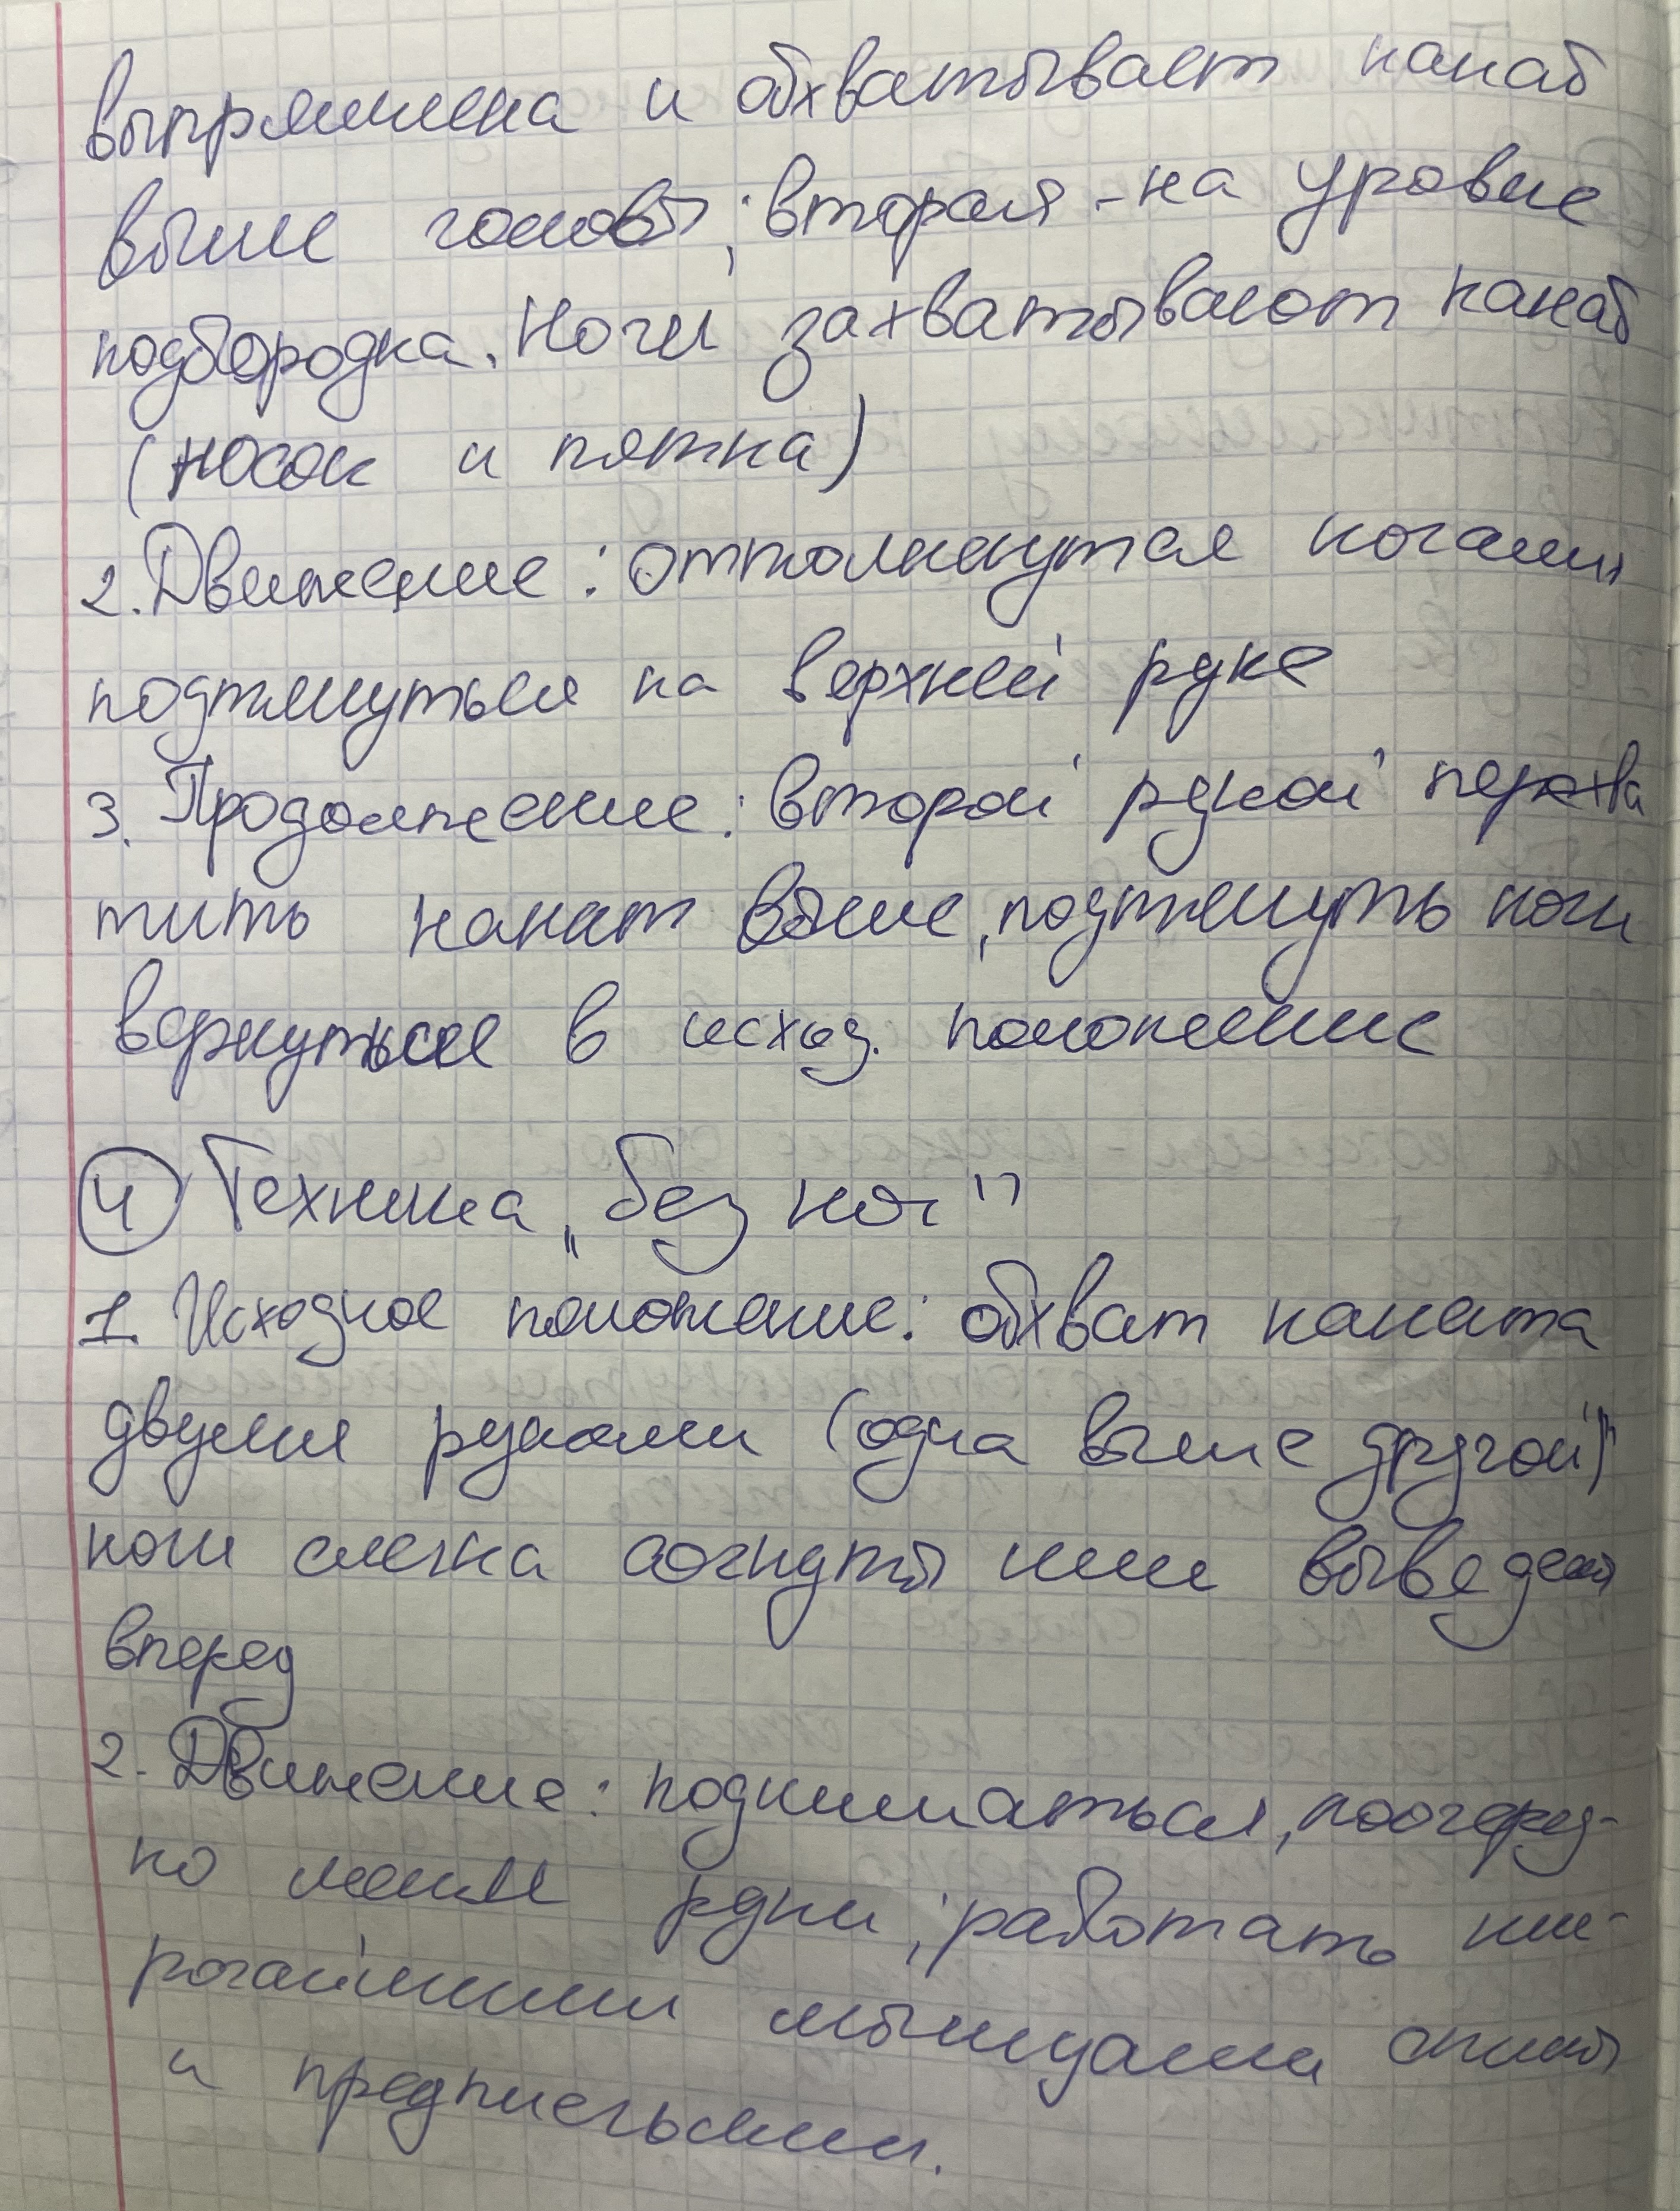 выпрямлена и обхватывает канаб
выше головы; вторая - на уровне
подбородка. Ноги захватывают канаб
(носок и пятка)
2. Движение: оттолкнутся ногами
подтянуться на верхней руке
3. Продолжение: второй рукой перехва
тить канат выше, подтянуть ноги
вернуться в исход. положение
④ Техника „без ног"
1. Исходное положение: обхват каната
двумя руками (одна выше другой)
ноги слегка согнуты или выведены
вперед
2. Движение: подниматься, поочеред-
но меняя руки, работать ши-
рочайшими мышцами спины
и предплечьями.